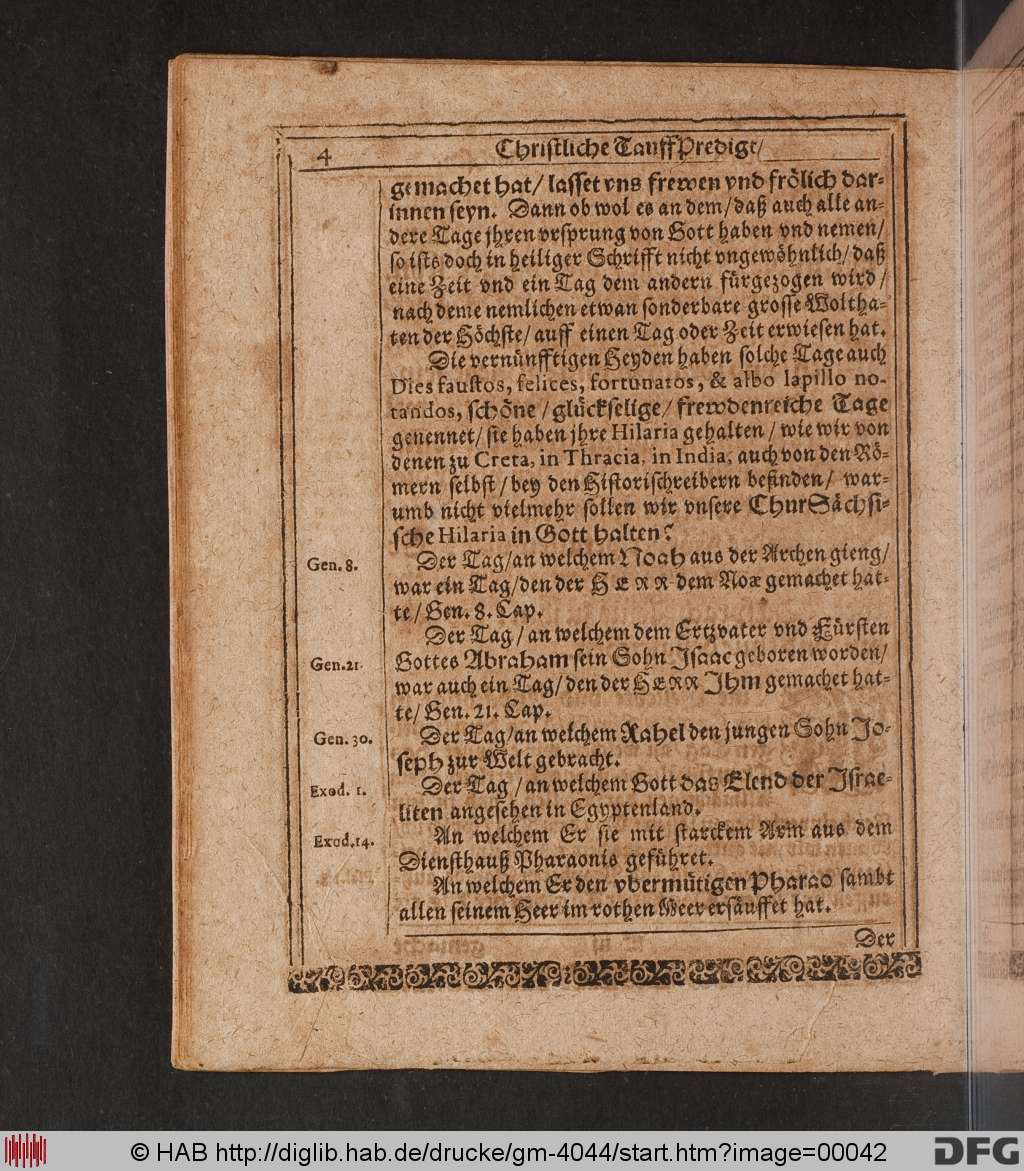 4 Christliche TauffPredigt/
gemachet hat/ lasset vns frewen vnd frölich dar-
innen seyn. Dann ob wol es an dem/ daß auch alle an-
dere Tage jhren vrsprung von Gott haben vnd nemen/
so ists doch in heiliger Schrifft nicht vngewöhnlich/ daß
eine Zeit vnd ein Tag dem andern fürgezogen wird/
nach deme nemlichen etwan sonderbare grosse Woltha-
ten der Höchste/ auff einen Tag oder Zeit erwiesen hat.
Die vernünfftigen Heyden haben solche Tage auch
Dies faustos, felices, fortunatos, & albo lapillo no-
tandos, schöne/ glückselige/ frewdenreiche Tage
genennet/ sie haben jhre Hilaria gehalten/ wie wir von
denen zu Creta, in Thracia, in India, auch von den Rö-
mern selbst/ bey den Historischreibern befinden/ war-
umb nicht vielmehr sollen wir vnsere ChurSächsi-
sche Hilaria in Gott halten?
Gen. 8. Der Tag/ an welchem Noah aus der Archen gieng/
war ein Tag/ den der HERR dem Noæ gemachet hat-
te/ Gen. 8. Cap.
Der Tag/ an welchem dem Ertzvater vnd Fürsten
Gen. 21. Gottes Abraham sein Sohn Isaac geboren worden/
war auch ein Tag/ den der HERR Ihm gemachet hat-
te/ Gen. 21. Cap.
Gen. 30. Der Tag/ an welchem Rahel den jungen Sohn Jo-
seph zur Welt gebracht.
Exod. 1. Der Tag/ an welchem Gott das Elend der Israe-
liten angesehen in Egyptenland.
Exod. 14. An welchem Er sie mit starckem Arm aus dem
Diensthauß Pharaonis geführet.
An welchem Er den vbermütigen Pharao sambt
allen seinem Heer im rothen Meer ersäuffet hat.
Der
© HAB http://diglib.hab.de/drucke/gm-4044/start.htm?image=00042
DFG